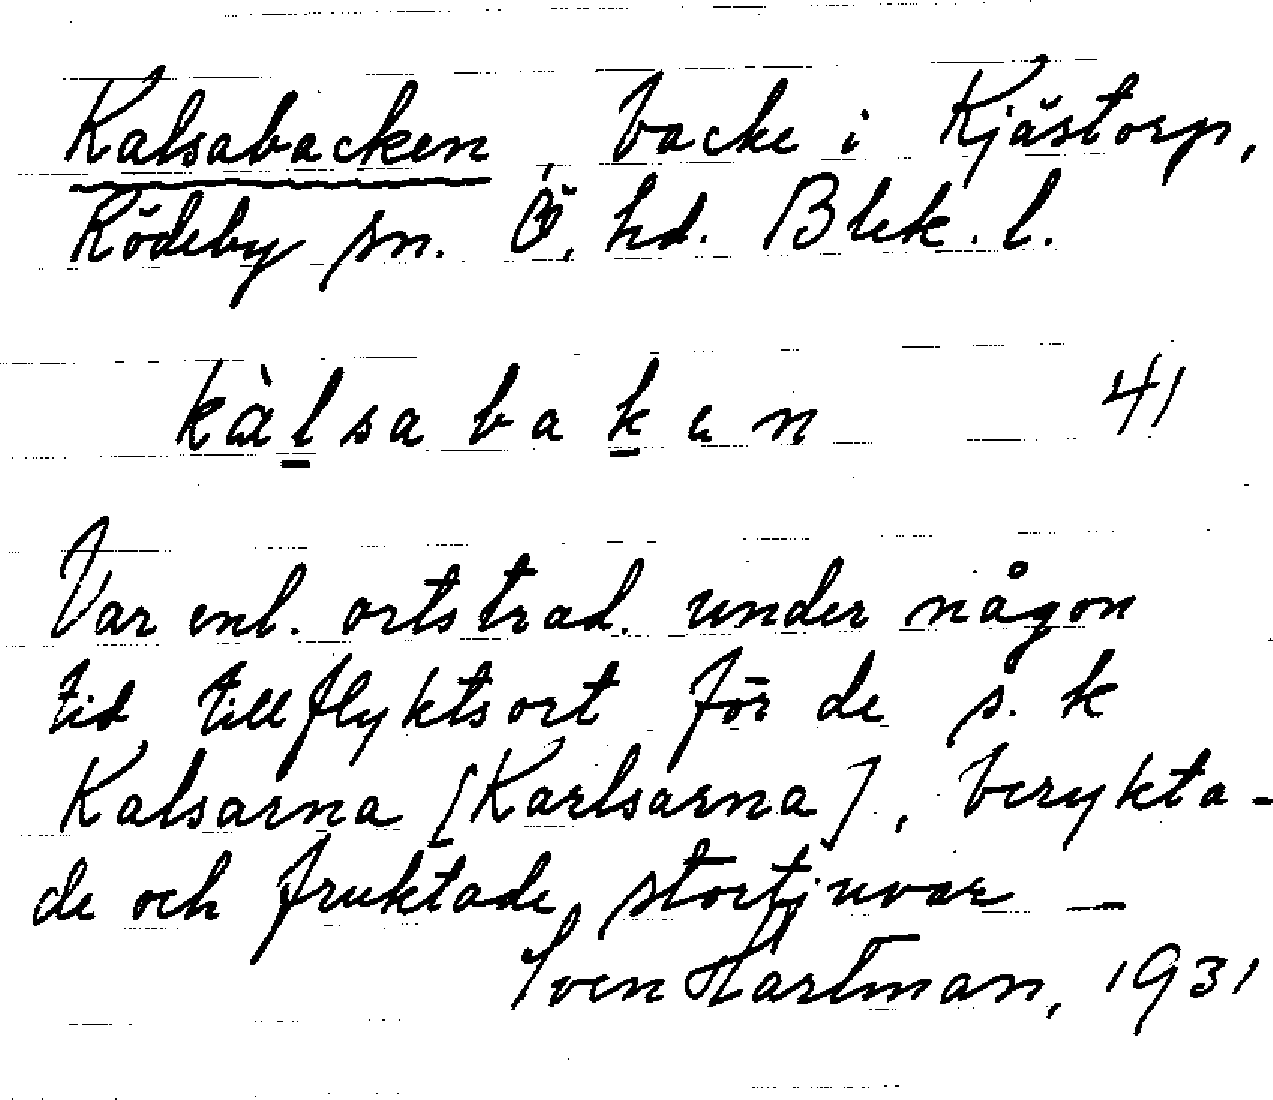 Kalsabacken, backe i Kjästorp,
Rödeby sn. Ö. hd. Blek. l.
kàlsabaken 41
Var enl. ortstrad. under någon
tid tillflyktsort för de s. k
Kalsarna [Karlsarna], berykta-
de och fruktade stortjuvar —
Sven Hartman, 1931